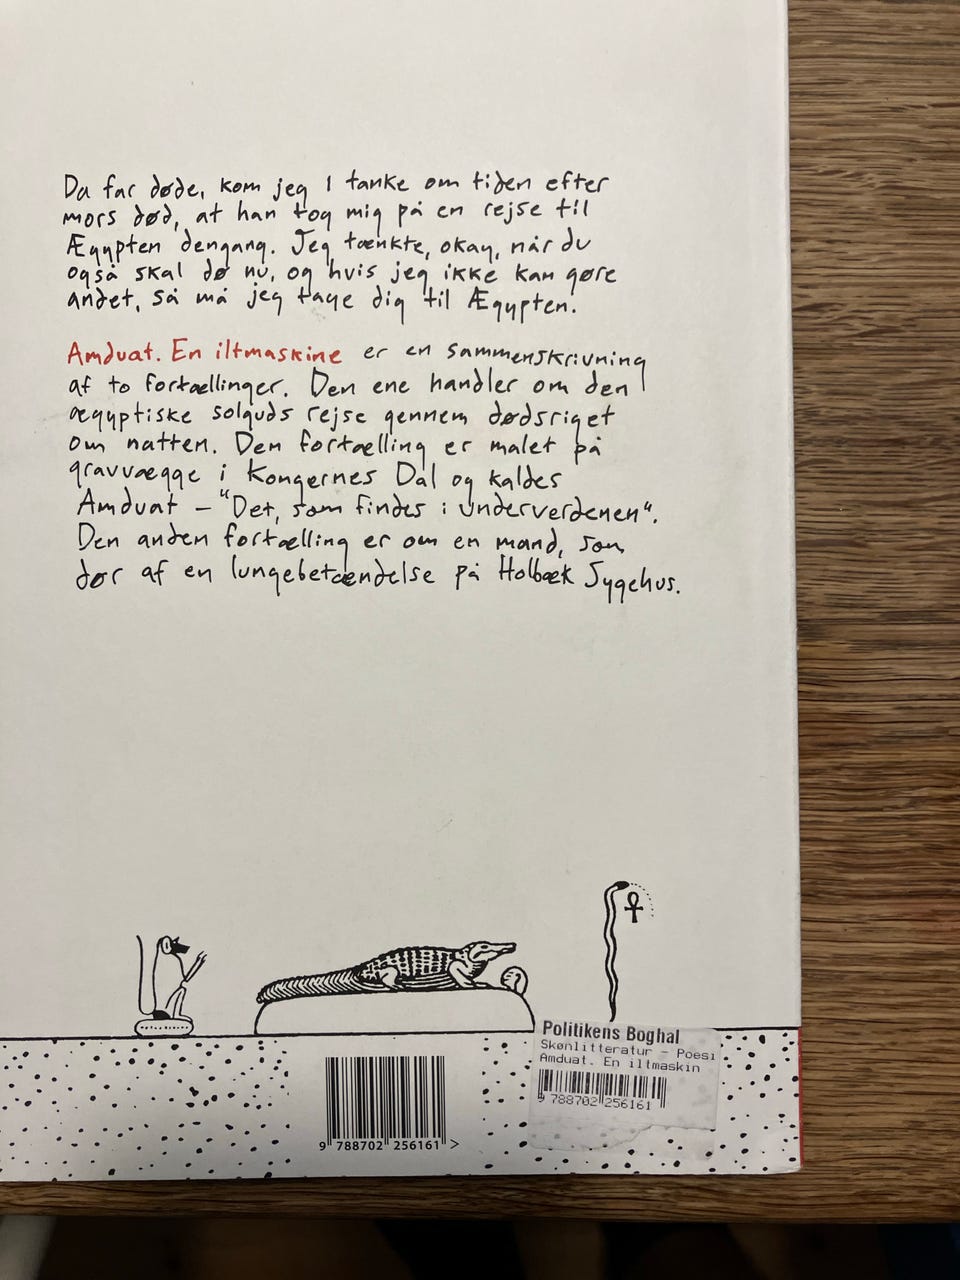 Da far døde, kom jeg i tanke om tiden efter
mors død, at han tog mig på en rejse til
Ægypten dengang. Jeg tænkte, okay, når du
også skal dø nu, og hvis jeg ikke kan gøre
andet, så må jeg tage dig til Ægypten.
Amduat. En iltmaskine er en sammenskrivning
af to fortællinger. Den ene handler om den
ægyptiske solguds rejse gennem dødsriget
om natten. Den fortælling er malet på
gravvægge i Kongernes Dal og kaldes
Amduat – "Det, som findes i underverdenen".
Den anden fortælling er om en mand, som
dør af en lungebetændelse på Holbæk Sygehus.
Politikens Boghal
Skønlitteratur - Poesi
Amduat. En iltmaskin
9 788702 256161
9 788702 256161 >